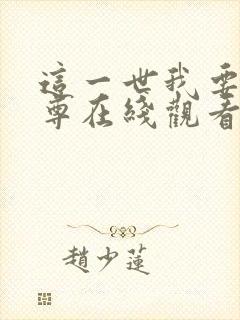 這一世我要
尊在綫觀看
趙少蓮